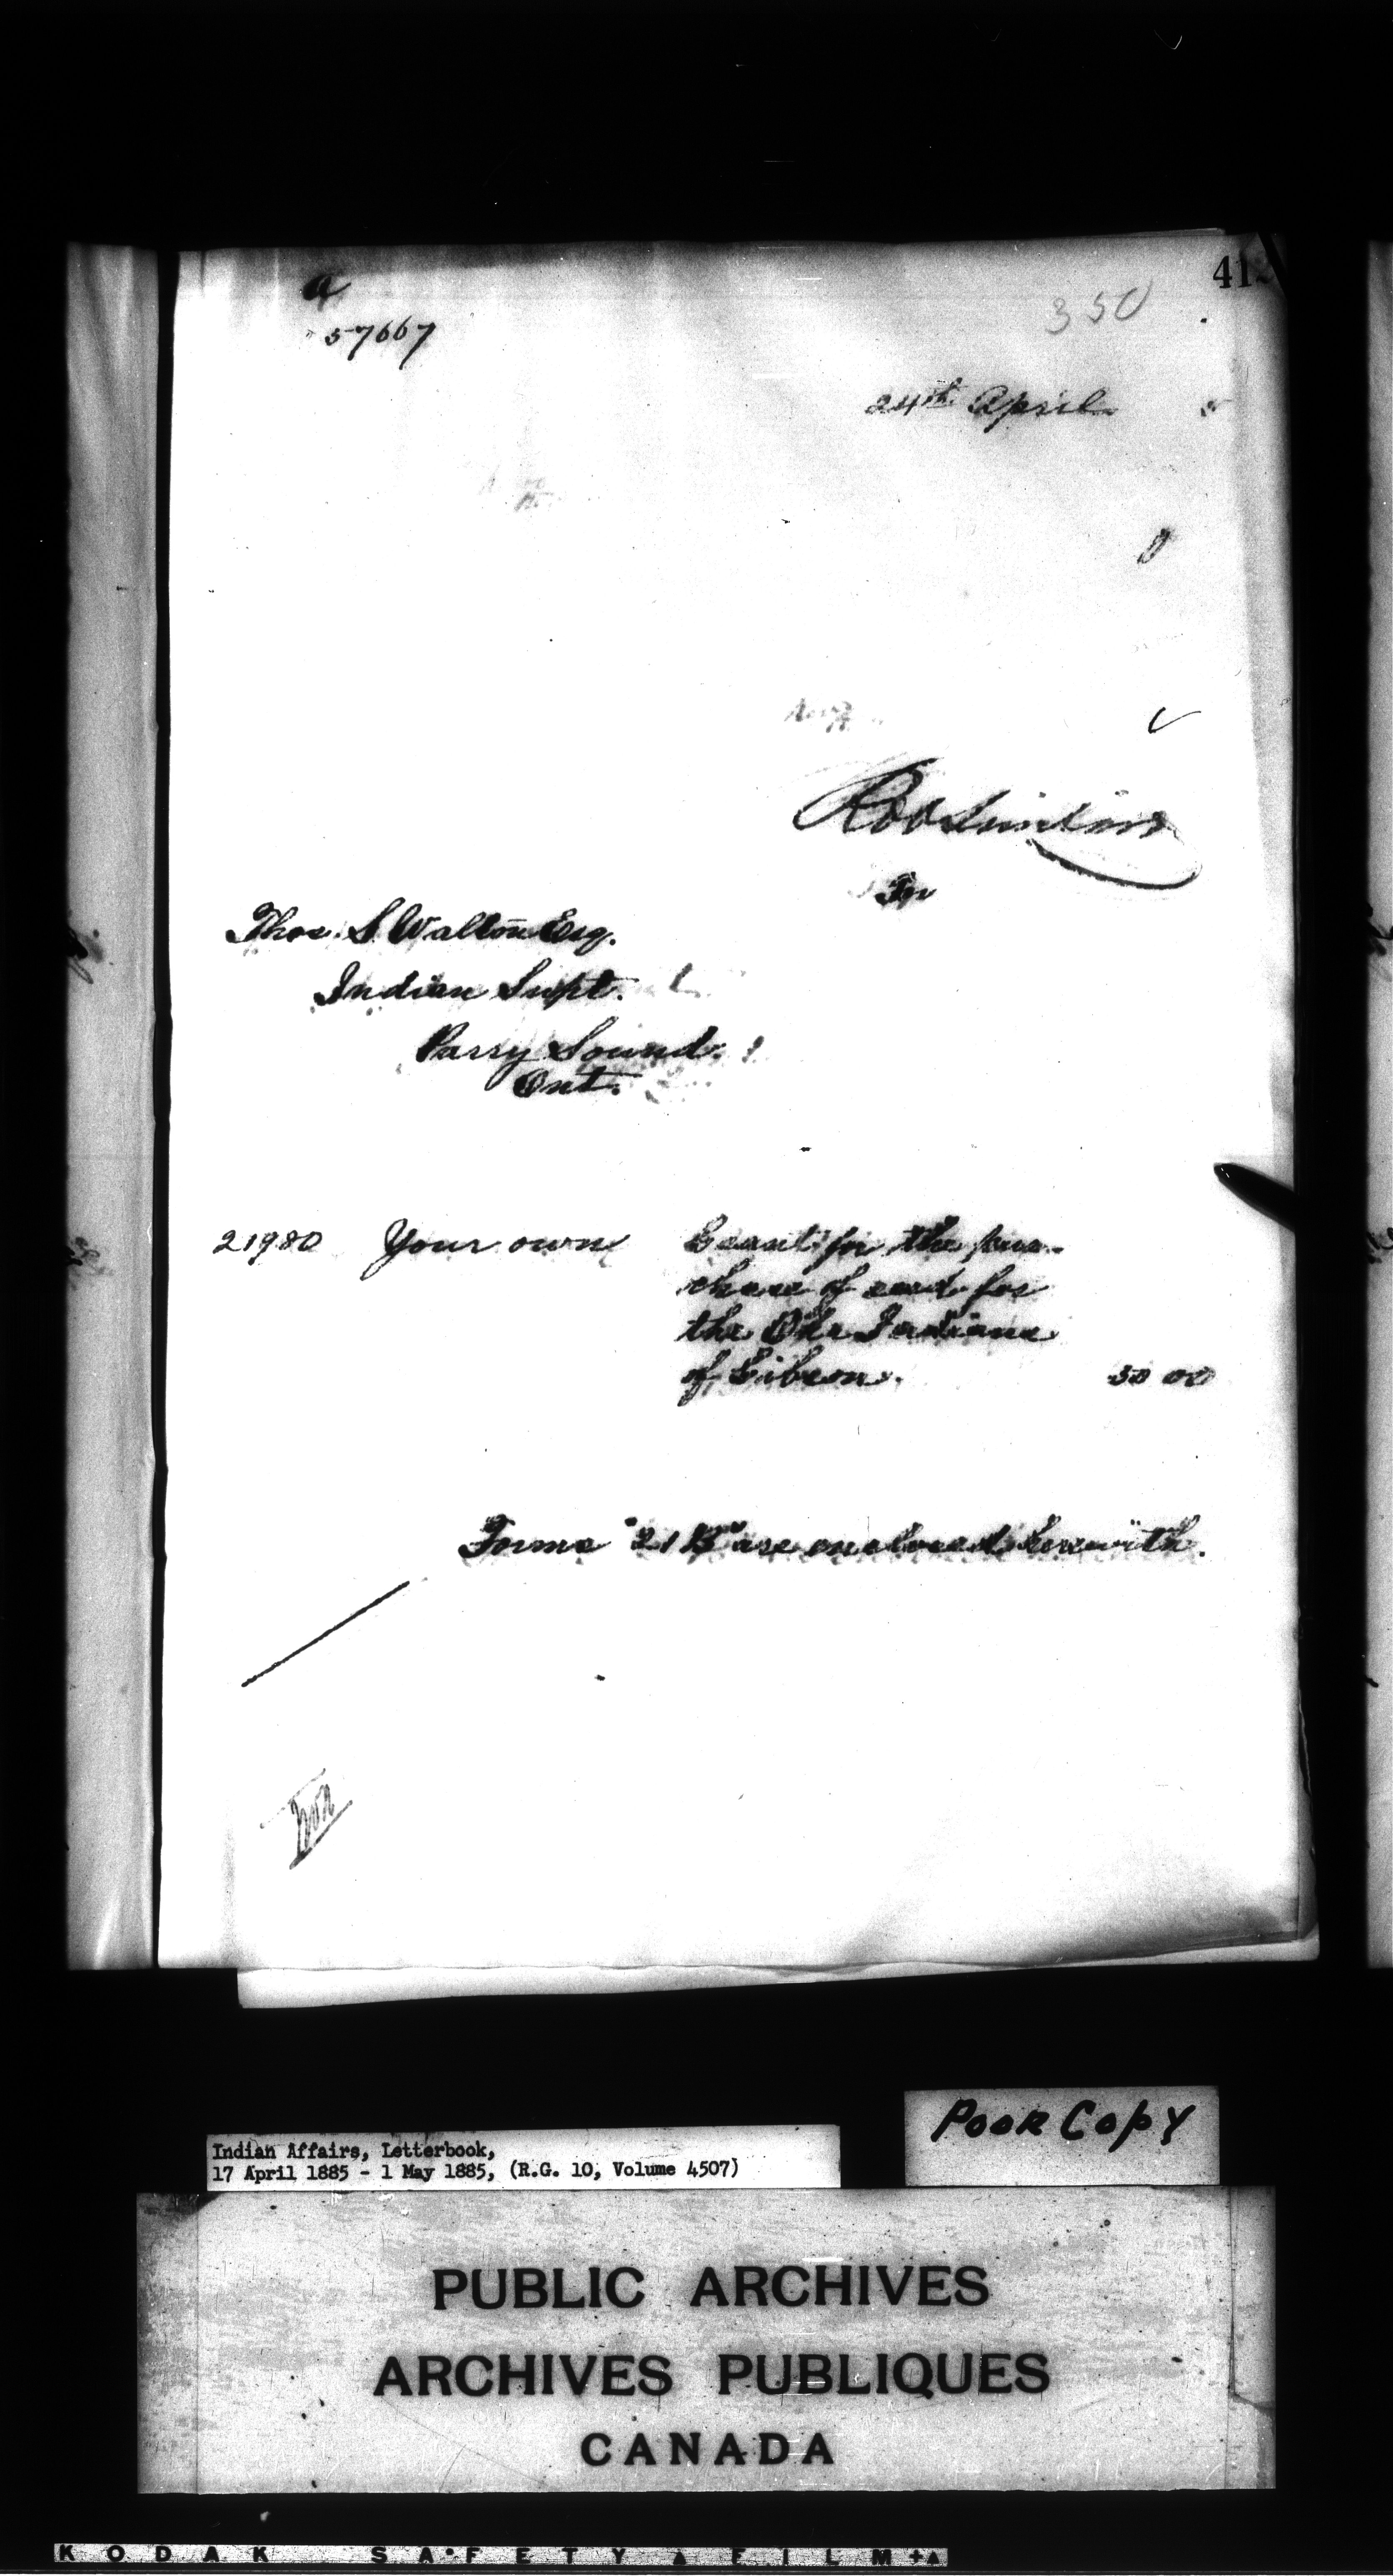 41
350
a
57667
24th April 5
Rob Sinclair
For
Thos. S. Walton Esq.
Indian Supt.
Parry Sound
Ont.
21980 Your own Grant for the pur-
chase of seed for
the Oka Indians
of Gibson. 50 00
Forms "21 B" are enclosed herewith.
Poor Copy
Indian Affairs, Letterbook,
17 April 1885 - 1 May 1885, (R.G. 10, Volume 4507)
PUBLIC ARCHIVES
ARCHIVES PUBLIQUES
CANADA
KODAK SAFETY FILM